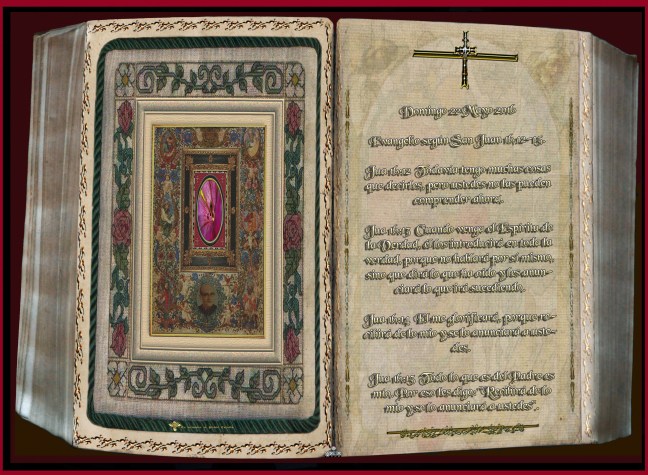 Domingo 22 Mayo 2016
Evangelio según San Juan 16,12-15.
Jua 16:12 Todavía tengo muchas cosas
que decirles, pero ustedes no las pueden
comprender ahora.
Jua 16:13 Cuando venga el Espíritu de
la Verdad, él los introducirá en toda la
verdad, porque no hablará por sí mismo,
sino que dirá lo que ha oído y les anun-
ciará lo que irá sucediendo.
El me glorificará, porque re-
cibirá de lo mío y se lo anunciará a uste-
des.
Jua 16:15 Todo lo que es del Padre es
mío. Por eso les digo: "Recibirá de lo
mío y se lo anunciará a ustedes".